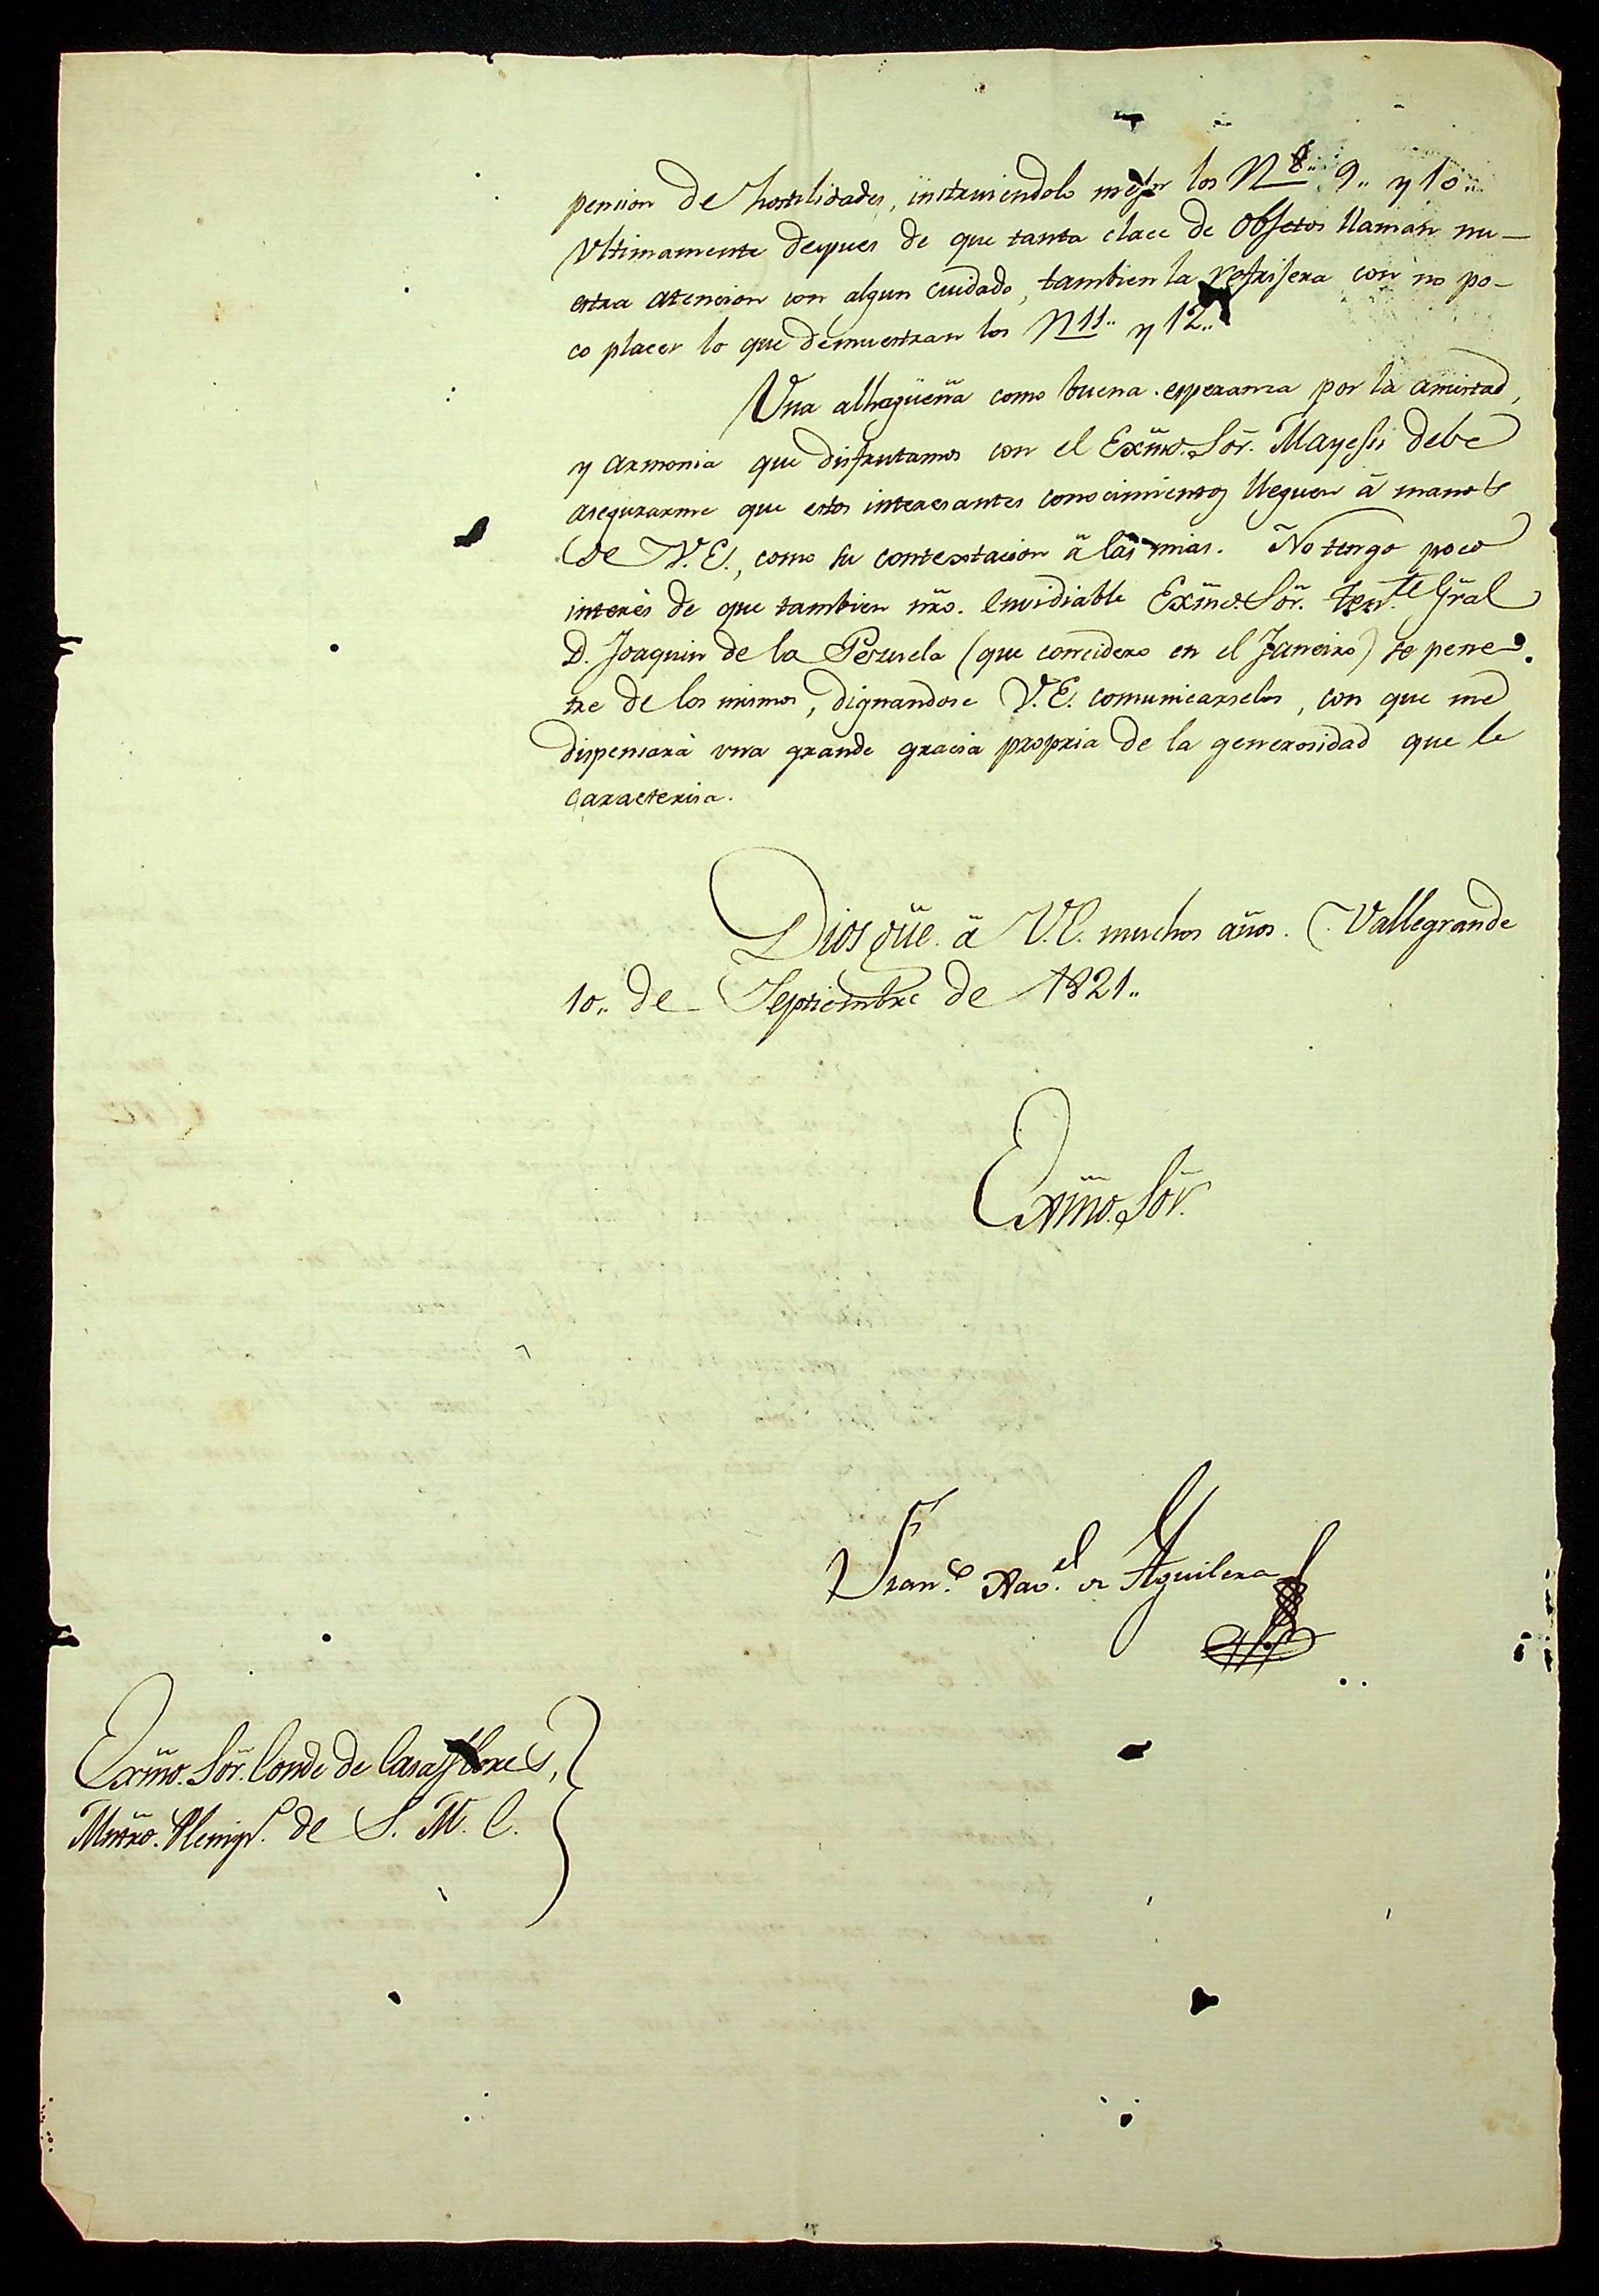 pension de hostilidades, instruiendolo mejor los N 8.. 9.. y 10..
Vltimamente depues de que tanta clace de Obgetos llaman nu-
estra atencion con algun cuidado, tambien la refrigera con no po-
co placer lo que demuestran los N 11.. y 12..
Una alhagüeña como buena esperanza por la amistad,
y armonia que disfrutamos con el Exmõ. Sõr. Mayesi debe
asegurarme que estos interesantes conocimientos lleguen â manos
de V.E., como su contextacion â las mias. No tengo poco
interès de que tambien nrõ. envidiable Exmõ. Sõr. Ten.te Grãl
D. Joaquin de la Pezuela (que concidero en el Janeiro) se pene-
tre de los mismos, dignandose V.E. comunicarselos, con que me
dispensarà una grande gracia propria de la generosidad que le
caracterisa.
Dios güe. â V.E. muchos años. Vallegrande
10.. de Septiembre de 1821..
Exmõ. Sõr.
Fran.co Xav.el de Aguilera
Exmõ. Sõr. Conde de Casaflores,
Mntrõ. Plenip.o de S. M. C.